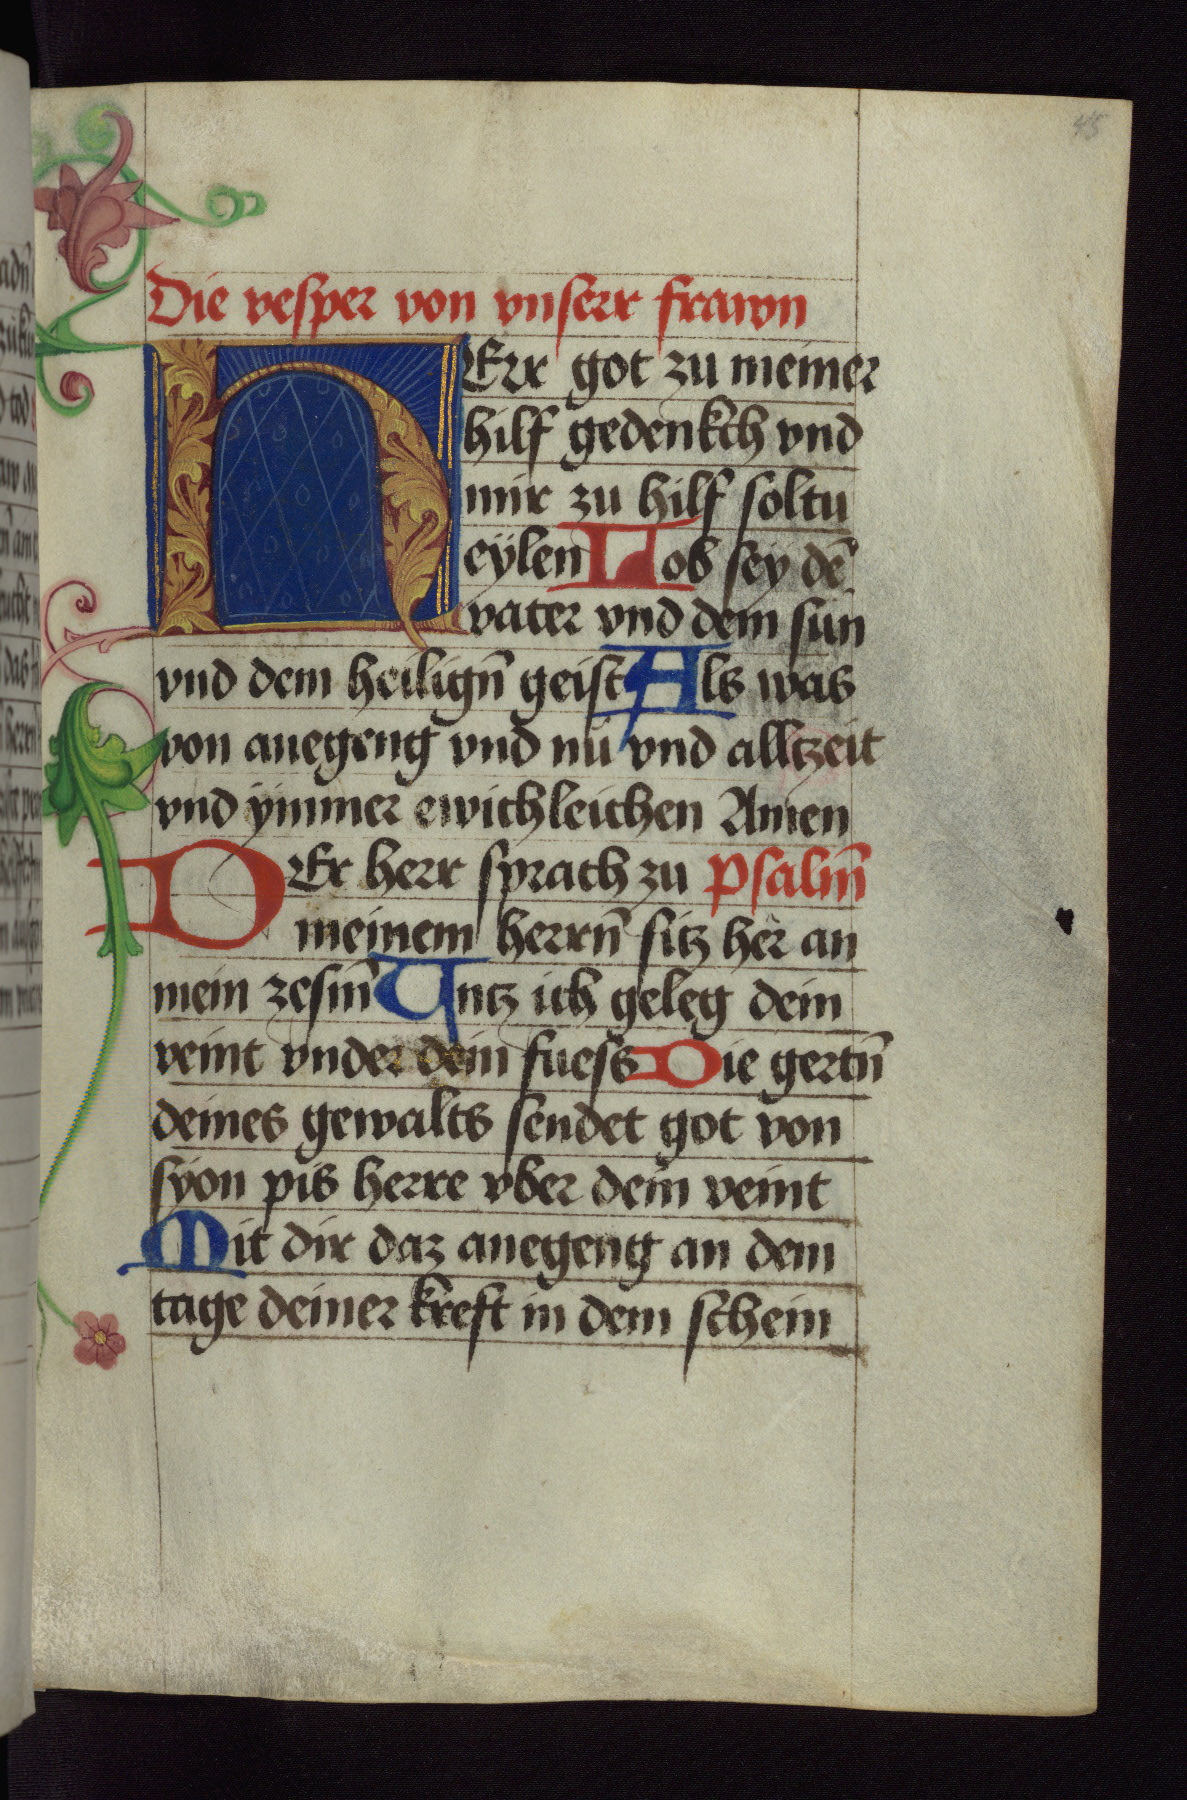 45
Die vesper von vnserr frawn
HErr got zu meiner
hilf gedenkch vnd
mir zu hilf soltu
eÿlen Lob seÿ dē
vater vnd dem sun
vnd dem heiligñ geist Als was
von anegeng vnd nu vnd alltzeit
vnd ÿmmer ewichleichen Amen
DEr herr sprach zu Psalm̄
meinem herrñ sitz her an
mein zesm̄ Vntz ich geleg dein
veint vnder dein fuess Die gertñ
deines gewalts sendet got von
sÿon pis herre vber dein veint
Mit dir daz anegeng an dem
tage deiner kreft in dem schein